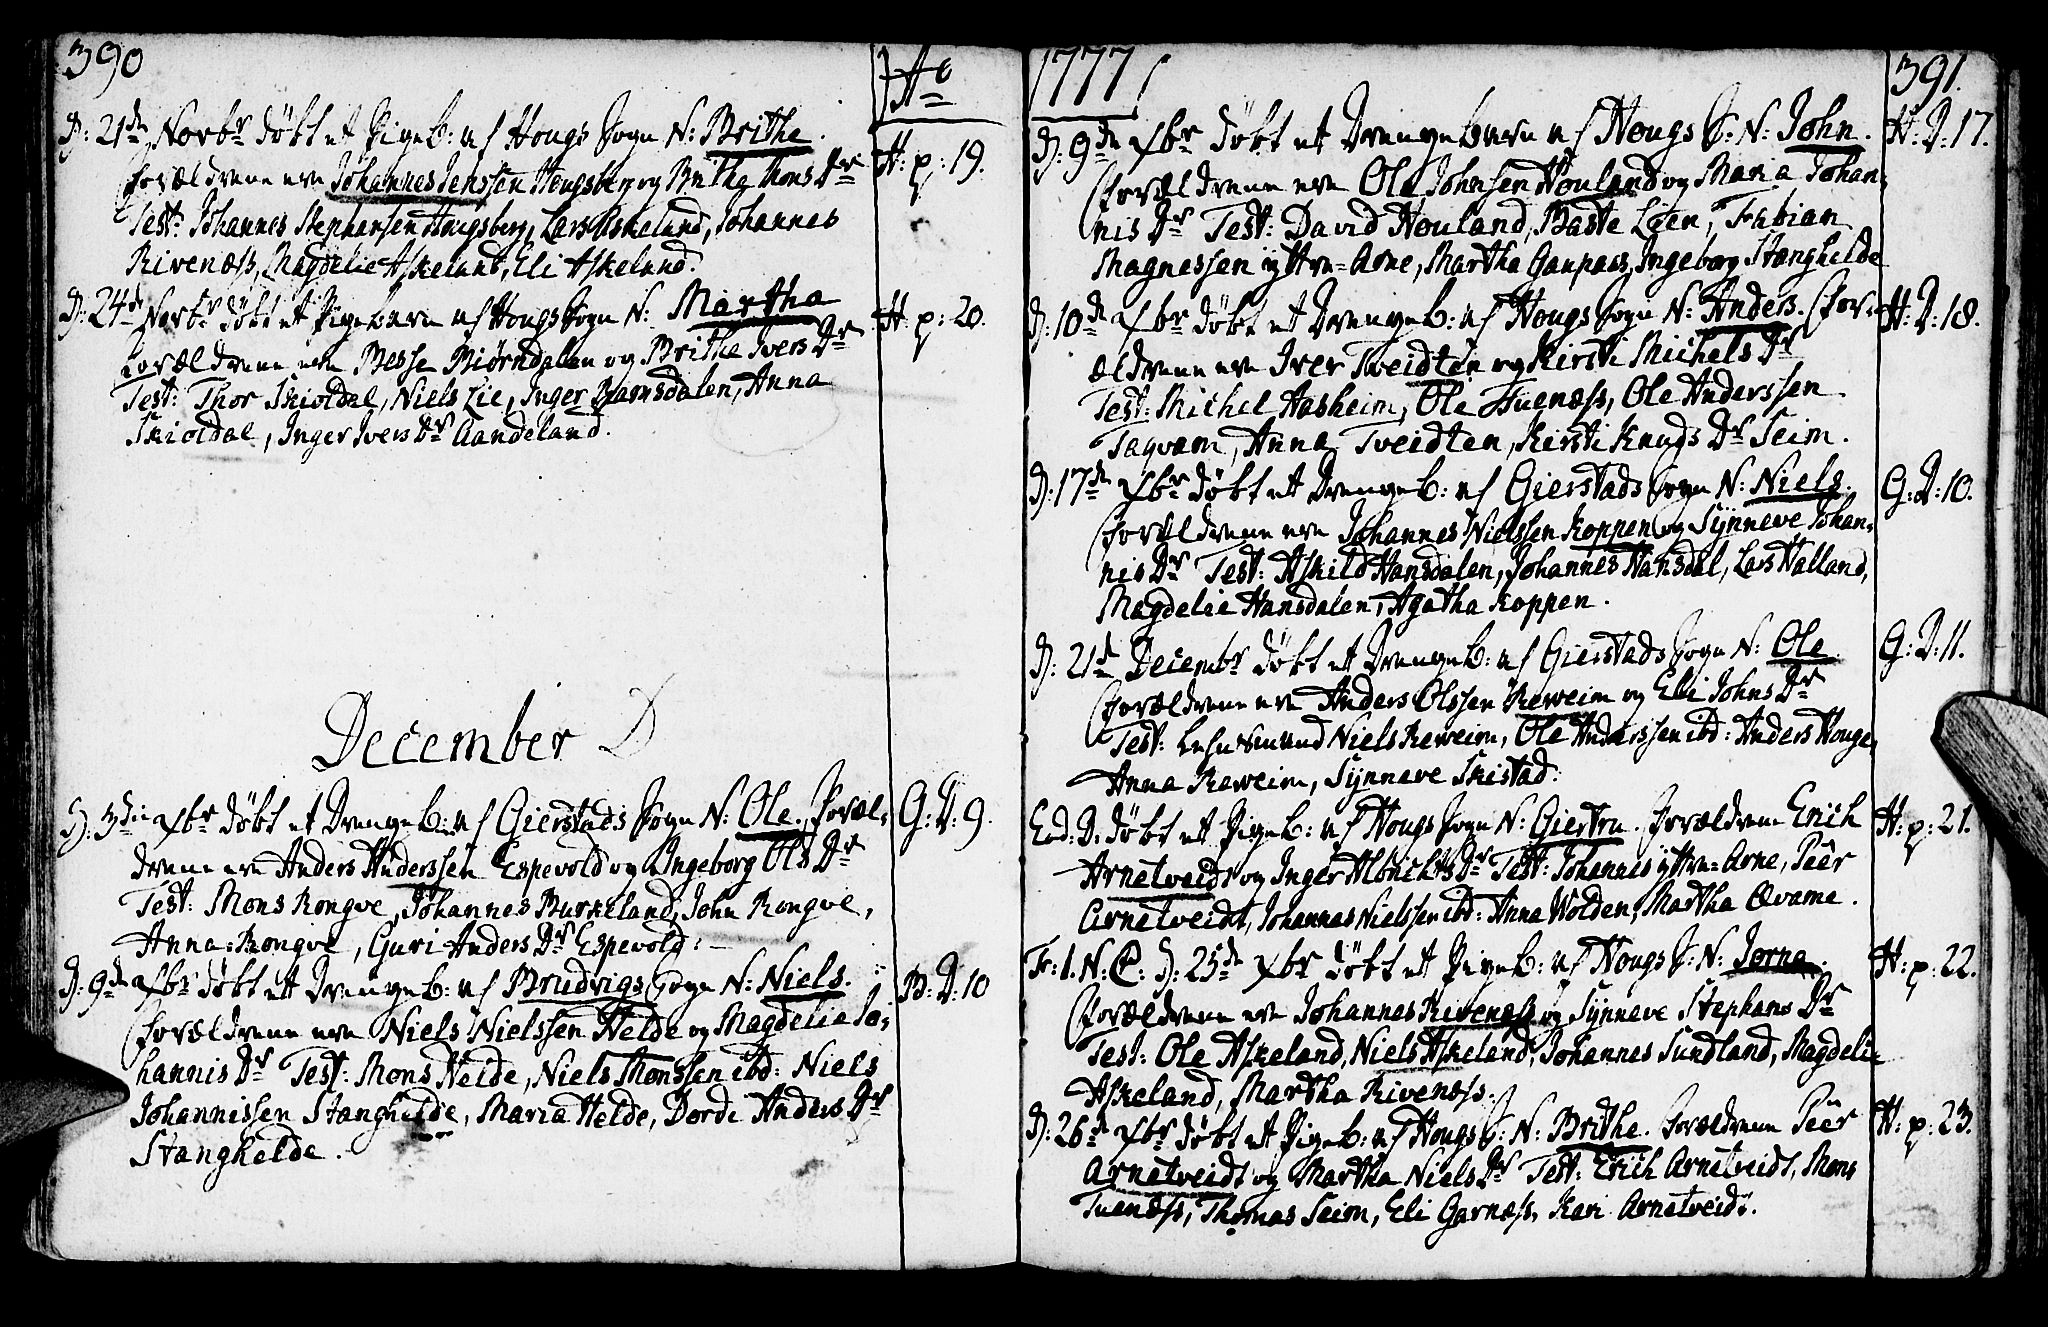 390
Ao
D: 21de Novbr døbt et Pigeb: af Hougs Sogn N: Brithe.
H: p: 19.
Forældrene ere Johannes Jenssen Hougsberg og Brithe Mons Dr
Test: Johannes Stephansen Hougsberg, Lars Askelund, Johannes
Rivenæss, Magdelie Askelund, Eli Askelund.
D: 24de Novbr døbt et Pigebarn af Hougs Sogn N: Martha
H: p: 20.
Forældrene ere Besse Biørndalen og Brithe Ivers Dr
Test: Thor Skioldal, Niels Lie, Inger Biørnsdalen, Anna
Skioldal, Inger Ivers Dr Aandeland.
December
D: 3die Xbr døbt et Drengeb: af Gierstads Sogn N: Ole. Foræl-
G: D: 9.
drene ere Anders Anderssen Espevold og Ingeborg Ols Dr
Test: Mons Rongve, Johannes Burkeland, John Rongve,
Anna Rongve, Guri Anders Dr Espevold.
D: 9de Xbr døbt et Drengeb: af Brudvigs Sogn N: Niels.
B: D: 10
Forældrene ere Niels Nielssen Helde og Magdelie Jo-
hannis Dr Test: Mons Helde, Niels Monssen ibd: Niels
Johannissen Stanghelde, Maria Helde, Dordi Anders Dr
Stanghelde.
1777
391.
D: 9de Xbr døbt et Drengebarn af Hougs S: N: John.
H: D: 17.
Forældrene ere Ole Johnsen Houland og Maria Johan-
nis Dr Test: David Houland, Baste Leen, Fabian
Magnessen yttre-Arne, Martha Gaupaas, Ingeborg Stanghelde
D: 10de Xbr døbt et Drengeb: af Hougs Sogn N: Anders. For-
H: D: 18.
ældrene ere Iver Tveidten og Kirsti Michels Dr
Test: Michel Aasheim, Ole Tuenæss, Ole Anderssen
Taqvam, Anna Tveidten, Kirsti Knuds Dr Seim.
D: 17de Xbr døbt et Drengeb: af Gierstads Sogn N: Niels.
G: D: 10.
Forældrene ere Johannes Nielssen Koppen og Synneve Johan-
nis Dr Test: Askild Hansdalen, Johannes Hansdal, Lars Halland,
Magdelie Hansdalen, Agatha Koppen.
D: 21de Decembr døbt et Drengeb: af Gierstads Sogn N: Ole.
G: D: 11.
Forældrene ere Anders Olssen Reweim og Eli Johns Dr
Test: Lehnsmand Niels Reweim, Ole Anderssen ibd: Anders Houge,
Anna Reweim, Synneve Skistad.
Eod: D. døbt et Pigeb: af Hougs Sogn N: Giertru. Forældrene Erich
H: p: 21.
Arnetveidt og Inger Albrichts Dr Test: Johannes yttre-Arne, Peër
Arnetveidt, Johannes Nielssen ibd: Anna Wolden, Martha Qvame.
Fr: 1. N: C: D: 25de Xbr døbt et Pigeb: af Hougs S: N: Jorna.
H: p: 22.
Forældrene ere Johannes Rivenæss og Synneve Stephans Dr
Test: Ole Askeland, Niels Askeland, Johannes Sundland, Magdeli
Askeland, Martha Rivenæss.
D: 26de Xbr døbt et Pigeb: af Hougs S: N: Brithe. Forældrene Peër
H: p: 23.
Arnetveidt og Martha Niels Dr Test: Erich Arnetveidt, Mons
Tuenæss, Thomas Seim, Eli Garnæss, Kari Arnetveidt.